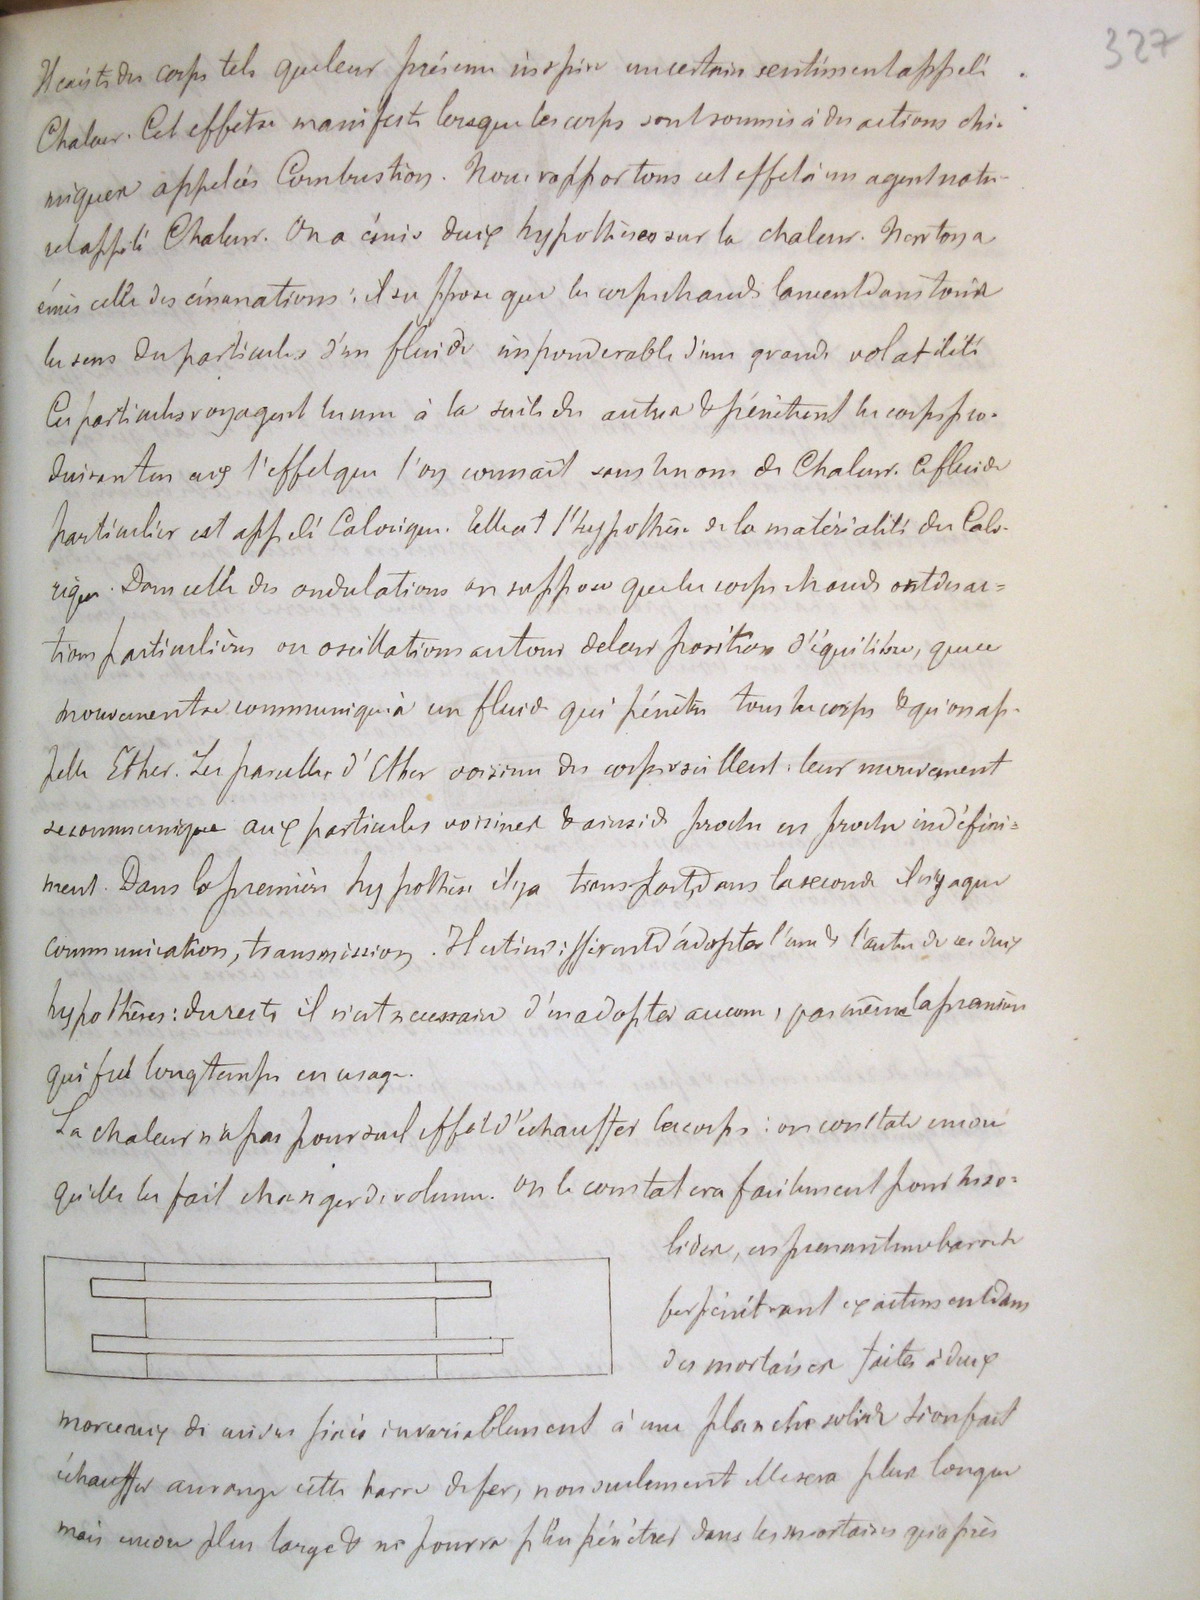 327
Il existe des corps tels que leur présence inspire un certain sentiment appelé
Chaleur. Cet effet se manifeste lorsque les corps sont soumis à des actions chi-
miques appelées Combustion. Nous rapportons cet effet à un agent natu-
rel appelé Chaleur. On a émis deux hypothèses sur la chaleur. Newton a
émis celle des émanations : il suppose que les corps chauds lancent dans tous
les sens des particules d'un fluide impondérable d'une grande volatilité
Ces particules voyagent les unes à la suite des autres & pénètrent les corps pro-
duisant en eux l'effet que l'on connaît sous le nom de Chaleur. Ce fluide
particulier est appelé Calorique. Telle est l'hypothèse de la matérialité du Calo-
rique. Dans celle des ondulations on suppose que les corps chauds ont des ac=
tions particulières ou oscillations autour de leur position d'équilibre, que ce
mouvement se communique à un fluide qui pénètre tous les corps & qu'on ap-
pelle Ether. Les parcelles d'Ether voisines des corps oscillent : leur mouvement
se communique aux particules voisines & ainsi de proche en proche indéfini=
ment. Dans la première hypothèse il y a transport, dans la seconde il n'y a que
communication, transmission. Il est indifférent d'adopter l'une & l'autre de ces deux
hypothèses : du reste il n'est nécessaire d'en adopter aucune, pas même la première
qui fut longtemps en usage.
La chaleur n'a pas pour seul effet d'échauffer les corps : on constate encore
qu'elle les fait changer de volume. On le constatera facilement pour les so=
lides, en prenant une barre de
fer pénétrant exactement dans
des mortaises faites à deux
morceaux de cuivre fixés invariablement à une planche solide si on fait
échauffer au rouge cette barre de fer, non seulement elle sera plus longue
mais encore plus large & ne pourra plus pénétrer dans les mortaises qu'après